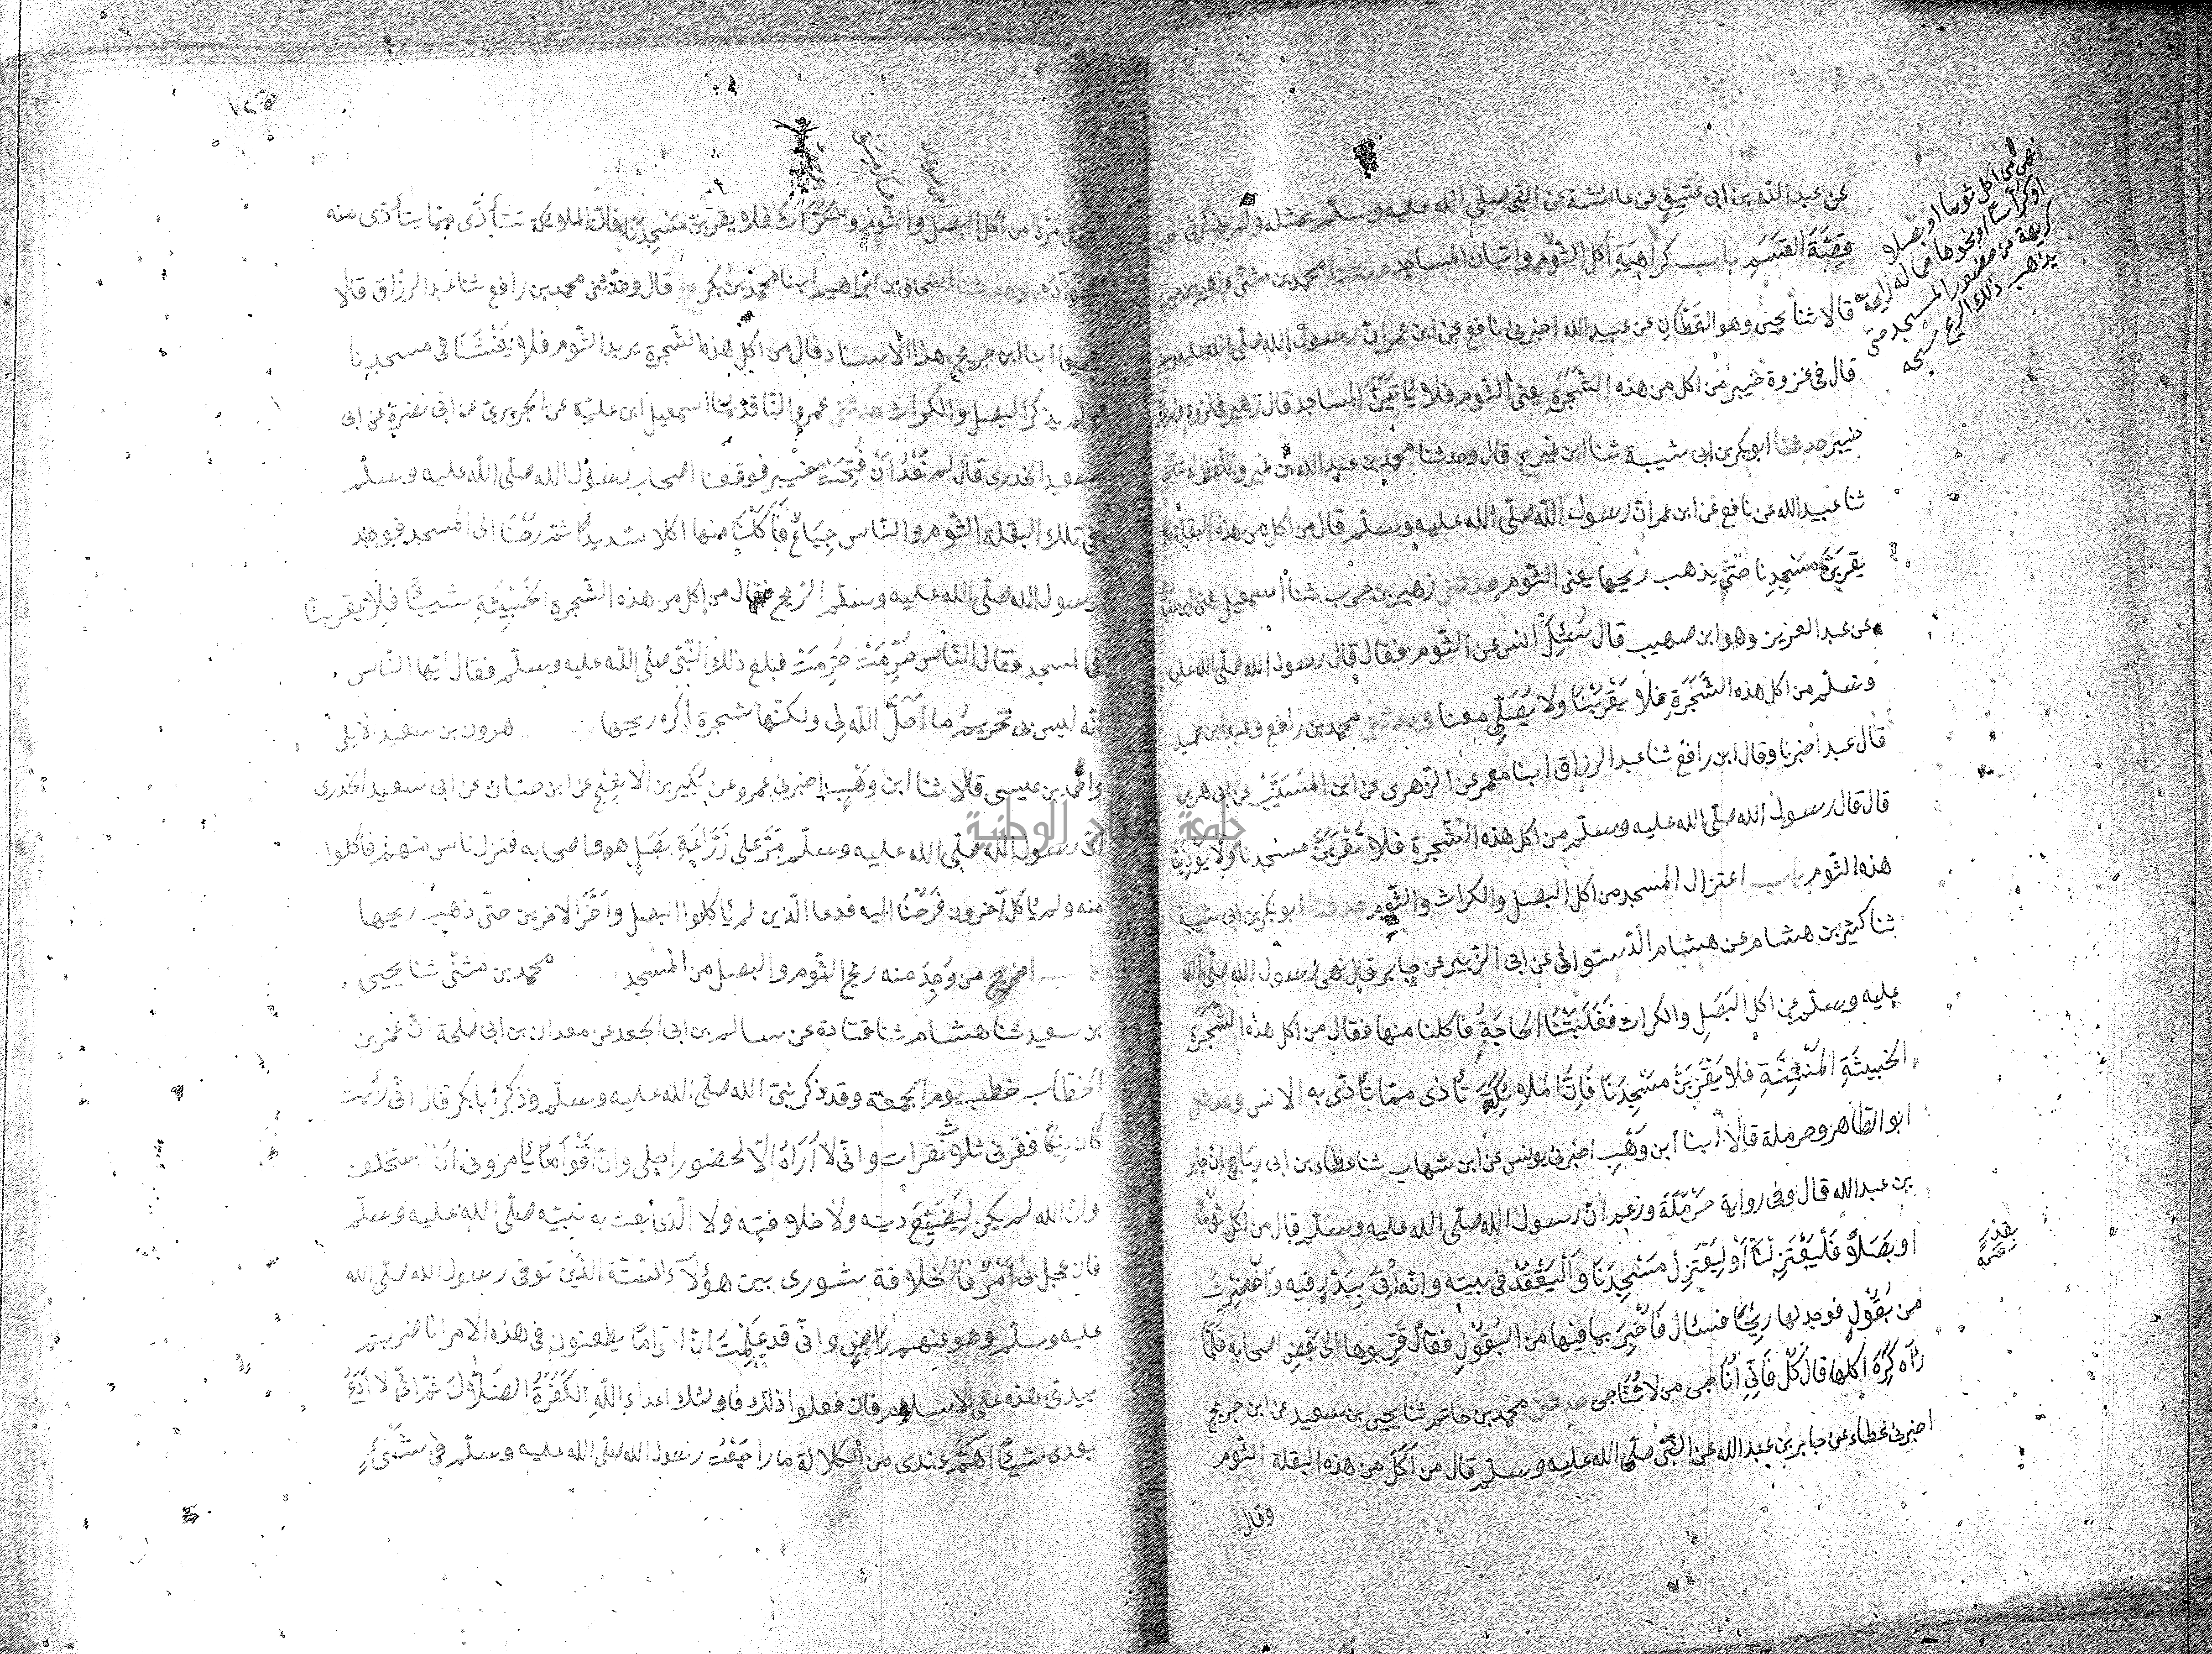 عن عبد الله بن ابى عتيق عن عائشة عن النبى صلى الله عليه وسلم بمثله ولم يذكر فى الحديث
قصة القسم باب كراهية اكل الثوم واتيان المساجد حدثنا محمد بن مثنى وزهير ابن حرب
قالا ثنا يحيى وهو القطان عن عبيد الله اخبرنى نافع عن ابن عمر ان رسول الله صلى الله عليه وسلم
قال فى غزوة خيبر من اكل من هذه الشجرة يعنى الثوم فلا ياتين المساجد قال زهير فى غزوة ولم يذكر
خيبر حدثنا ابو بكر بن ابى شيبة ثنا ابن نمير ح قال وحدثنا محمد بن عبد الله بن نمير واللفظ له ثنا ابى
ثنا عبيد الله عن نافع عن ابن عمر ان رسول الله صلى الله عليه وسلم قال من اكل من هذه البقلة فلا
يقربن مسجدنا حتى يذهب ريحها يعنى الثوم حدثنى زهير بن حرب ثنا اسمعيل يعنى ابن علية
عن عبد العزيز وهو ابن صهيب قال سئل انس عن الثوم فقال قال رسول الله صلى الله عليه
وسلم من اكل هذه الشجرة فلا يقربنا ولا يصلى معنا وحدثنى محمد بن رافع وعبد ابن حميد
قال عبد اخبرنا وقال ابن رافع ثنا عبد الرزاق ابنا معمر عن الزهرى عن ابن المسيب عن ابى هريرة
قال قال رسول الله صلى الله عليه وسلم من اكل هذه الشجرة فلا يقربن مسجدنا ولا يوذينا
هذه الثوم باب اعتزال المسجد من اكل البصل والكراث والثوم حدثنا ابو بكر بن ابى شيبة
ثنا كثير بن هشام عن هشام الدستوائى عن ابى الزبير عن جابر قال نهى رسول الله صلى الله
عليه وسلم عن اكل البصل والكراث فغلبتنا الحاجة فاكلنا منها فقال من اكل هذه الشجرة
الخبيثة المنتنة فلا يقربن مسجدنا فان الملائكة تأذى مما يتأذى به الانس وحدثنى
ابو الطاهر وحرملة قالا ابنا ابن وهب اخبرنى يونس عن ابن شهاب ثنا عطاء بن ابى رباح ان جابر
بن عبد الله قال وفى رواية حرملة وزعم ان رسول الله صلى الله عليه وسلم قال من اكل ثوما
او بصلا فليعتزلنا او ليعتزل مسجدنا وليقعد فى بيته وانه اتى ببدر فيه خضرات
من بقول فوجد لها ريحا فسال فاخبر بما فيها من البقول فقال قربوها الى بعض اصحابه فلما
رآه كره اكلها قال كل فانى اناجى من لا تناجى حدثنى محمد بن حاتم ثنا يحيى بن سعيد عن ابن جريج
اخبرنى عطاء عن جابر بن عبد الله عن النبى صلى الله عليه وسلم قال من اكل من هذه البقلة الثوم
وقال
نهى من اكل ثوما او بصلا
او كراثا او نحوها مما له رايحة
كريهة من حضور المسجد حتى
يذهب ذلك الريح
وقال مرة من اكل البصل والثوم والكراث فلا يقربن مسجدنا فان الملائكة تتأذى مما يتأذى منه
بنو آدم وحدثنا اسحاق بن ابراهيم ابنا محمد بن بكر ح قال وحدثنى محمد بن رافع ثنا عبد الرزاق قالا
جميعا ابنا ابن جريج بهذا الاسناد قال من اكل هذه الشجرة يريد الثوم فلا يغشنا فى مسجدنا
ولم يذكر البصل والكراث حدثنى عمرو الناقد ثنا اسمعيل ابن علية عن الجريرى عن ابى نضرة عن ابى
سعيد الخدرى قال لم نعد ان فتحت خيبر فوقعنا اصحاب رسول الله صلى الله عليه وسلم
فى تلك البقلة الثوم والناس جياع فاكلنا منها اكلا شديدا ثم رحنا الى المسجد فوجد
رسول الله صلى الله عليه وسلم الريح فقال من اكل من هذه الشجرة الخبيثة شيئا فلا يقربنا
فى المسجد فقال الناس حرمت حرمت فبلغ ذلك النبى صلى الله عليه وسلم فقال ايها الناس
انه ليس بى تحريم ما احل الله لى ولكنها شجرة اكره ريحها هرون بن سعيد الايلى
واحمد بن عيسى قالا ثنا ابن وهب اخبرنى عمرو عن بكير بن الاشج عن ابن خباب عن ابى سعيد الخدرى
ان رسول الله صلى الله عليه وسلم مر على زراعة بصل هو واصحابه فنزل ناس منهم فاكلوا
منه ولم ياكل آخرون فرحنا اليه فدعا الذين لم ياكلوا البصل واخر الاخرين حتى ذهب ريحها
باب اخرج من وجد منه ريح الثوم والبصل من المسجد محمد بن مثنى ثنا يحيى
بن سعيد ثنا هشام ثنا قتادة عن سالم بن ابى الجعد عن معدان بن ابى طلحة ان عمر بن
الخطاب خطب يوم الجمعة وقد ذكر نبى الله صلى الله عليه وسلم وذكر ابا بكر قال انى رئيت
كان ديكا نقرنى ثلاث نقرات وانى لا اراه الا لحضور اجلى وان اقواما يامرونى ان استخلف
وان الله لم يكن ليضيع دينه ولا خلافته ولا الذى بعث به نبيه صلى الله عليه وسلم
فان عجل بى امر فالخلافة شورى بين هؤلاء الستة الذين توفى رسول الله صلى الله
عليه وسلم وهو عنهم راض وانى قد علمت ان اقواما يطعنون فى هذه الامر انا ضربتهم
بيدى هذه على الاسلام فان فعلوا ذلك فاولئك اعداء الله الكفرة الضلال ثم انى لا ادع
بعدى شيئا اهم عندى من الكلالة ما راجعت رسول الله صلى الله عليه وسلم فى شئ
جامعة النجاح الوطنية